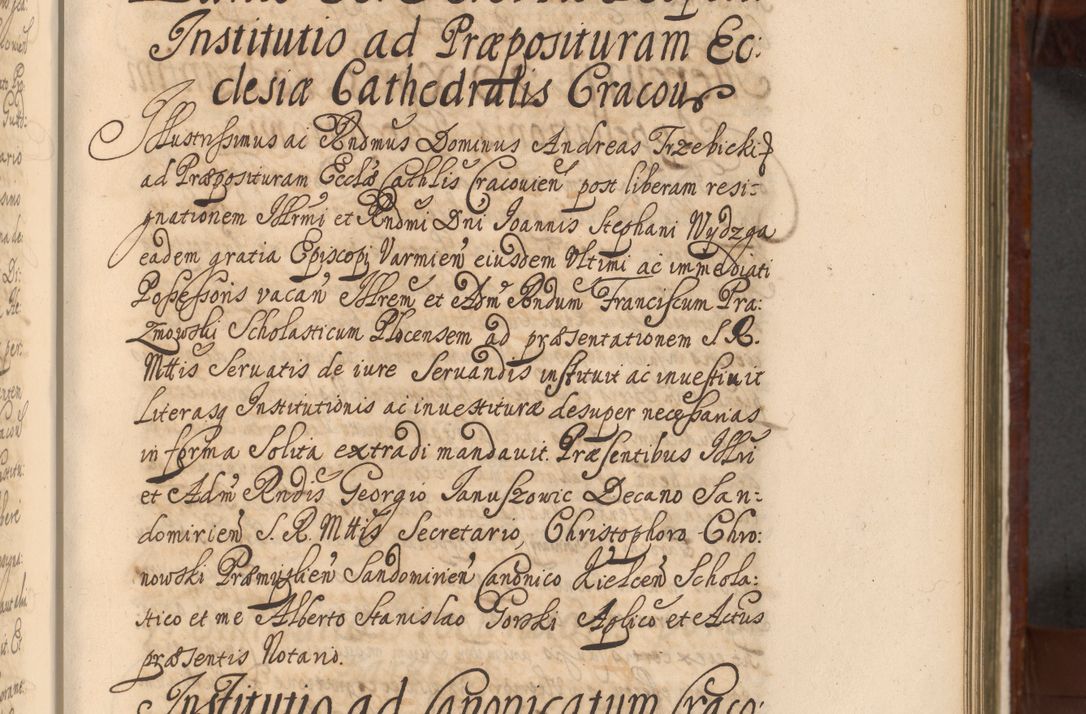 Institutio ad Præposituram Ec:
clesiæ Cathedralis Cracou
Illustrissimus ac Rndmus Dominus Andreas Trzebicki
ad Præposituram Ecclæ Cathlis Cracouien post liberam resi=
gnationem Illrmi et Rndmi Dni Joannis Stephani Wydzga
eadem gratia Episcopi Varmien eiusdem Ultimi ac immediati
Possessoris vacan Illrem et Adm Rndum Franciscum Pra:
zmowski Scholasticum Plocensem ad præsentationem S. R.
Mttis Seruatis de iure Seruandis instituit ac inuestiuit
Literasq Institutionis ac inuestituræ desuper necessarias
in forma Solita extradi mandauit. Præsentibus Illri
et Adm Rndis Georgio Januszowic Decano San=
domirien S. R. Mttis Secretario, Christophoro Chro:
nowski Præmyslien Sandomirien Canonico Kielcen Schola:
stico et me Alberto Stanislao Gorski Aplico et Actus
præsentis Notario.
Institutio ad Canonicatum Craco: